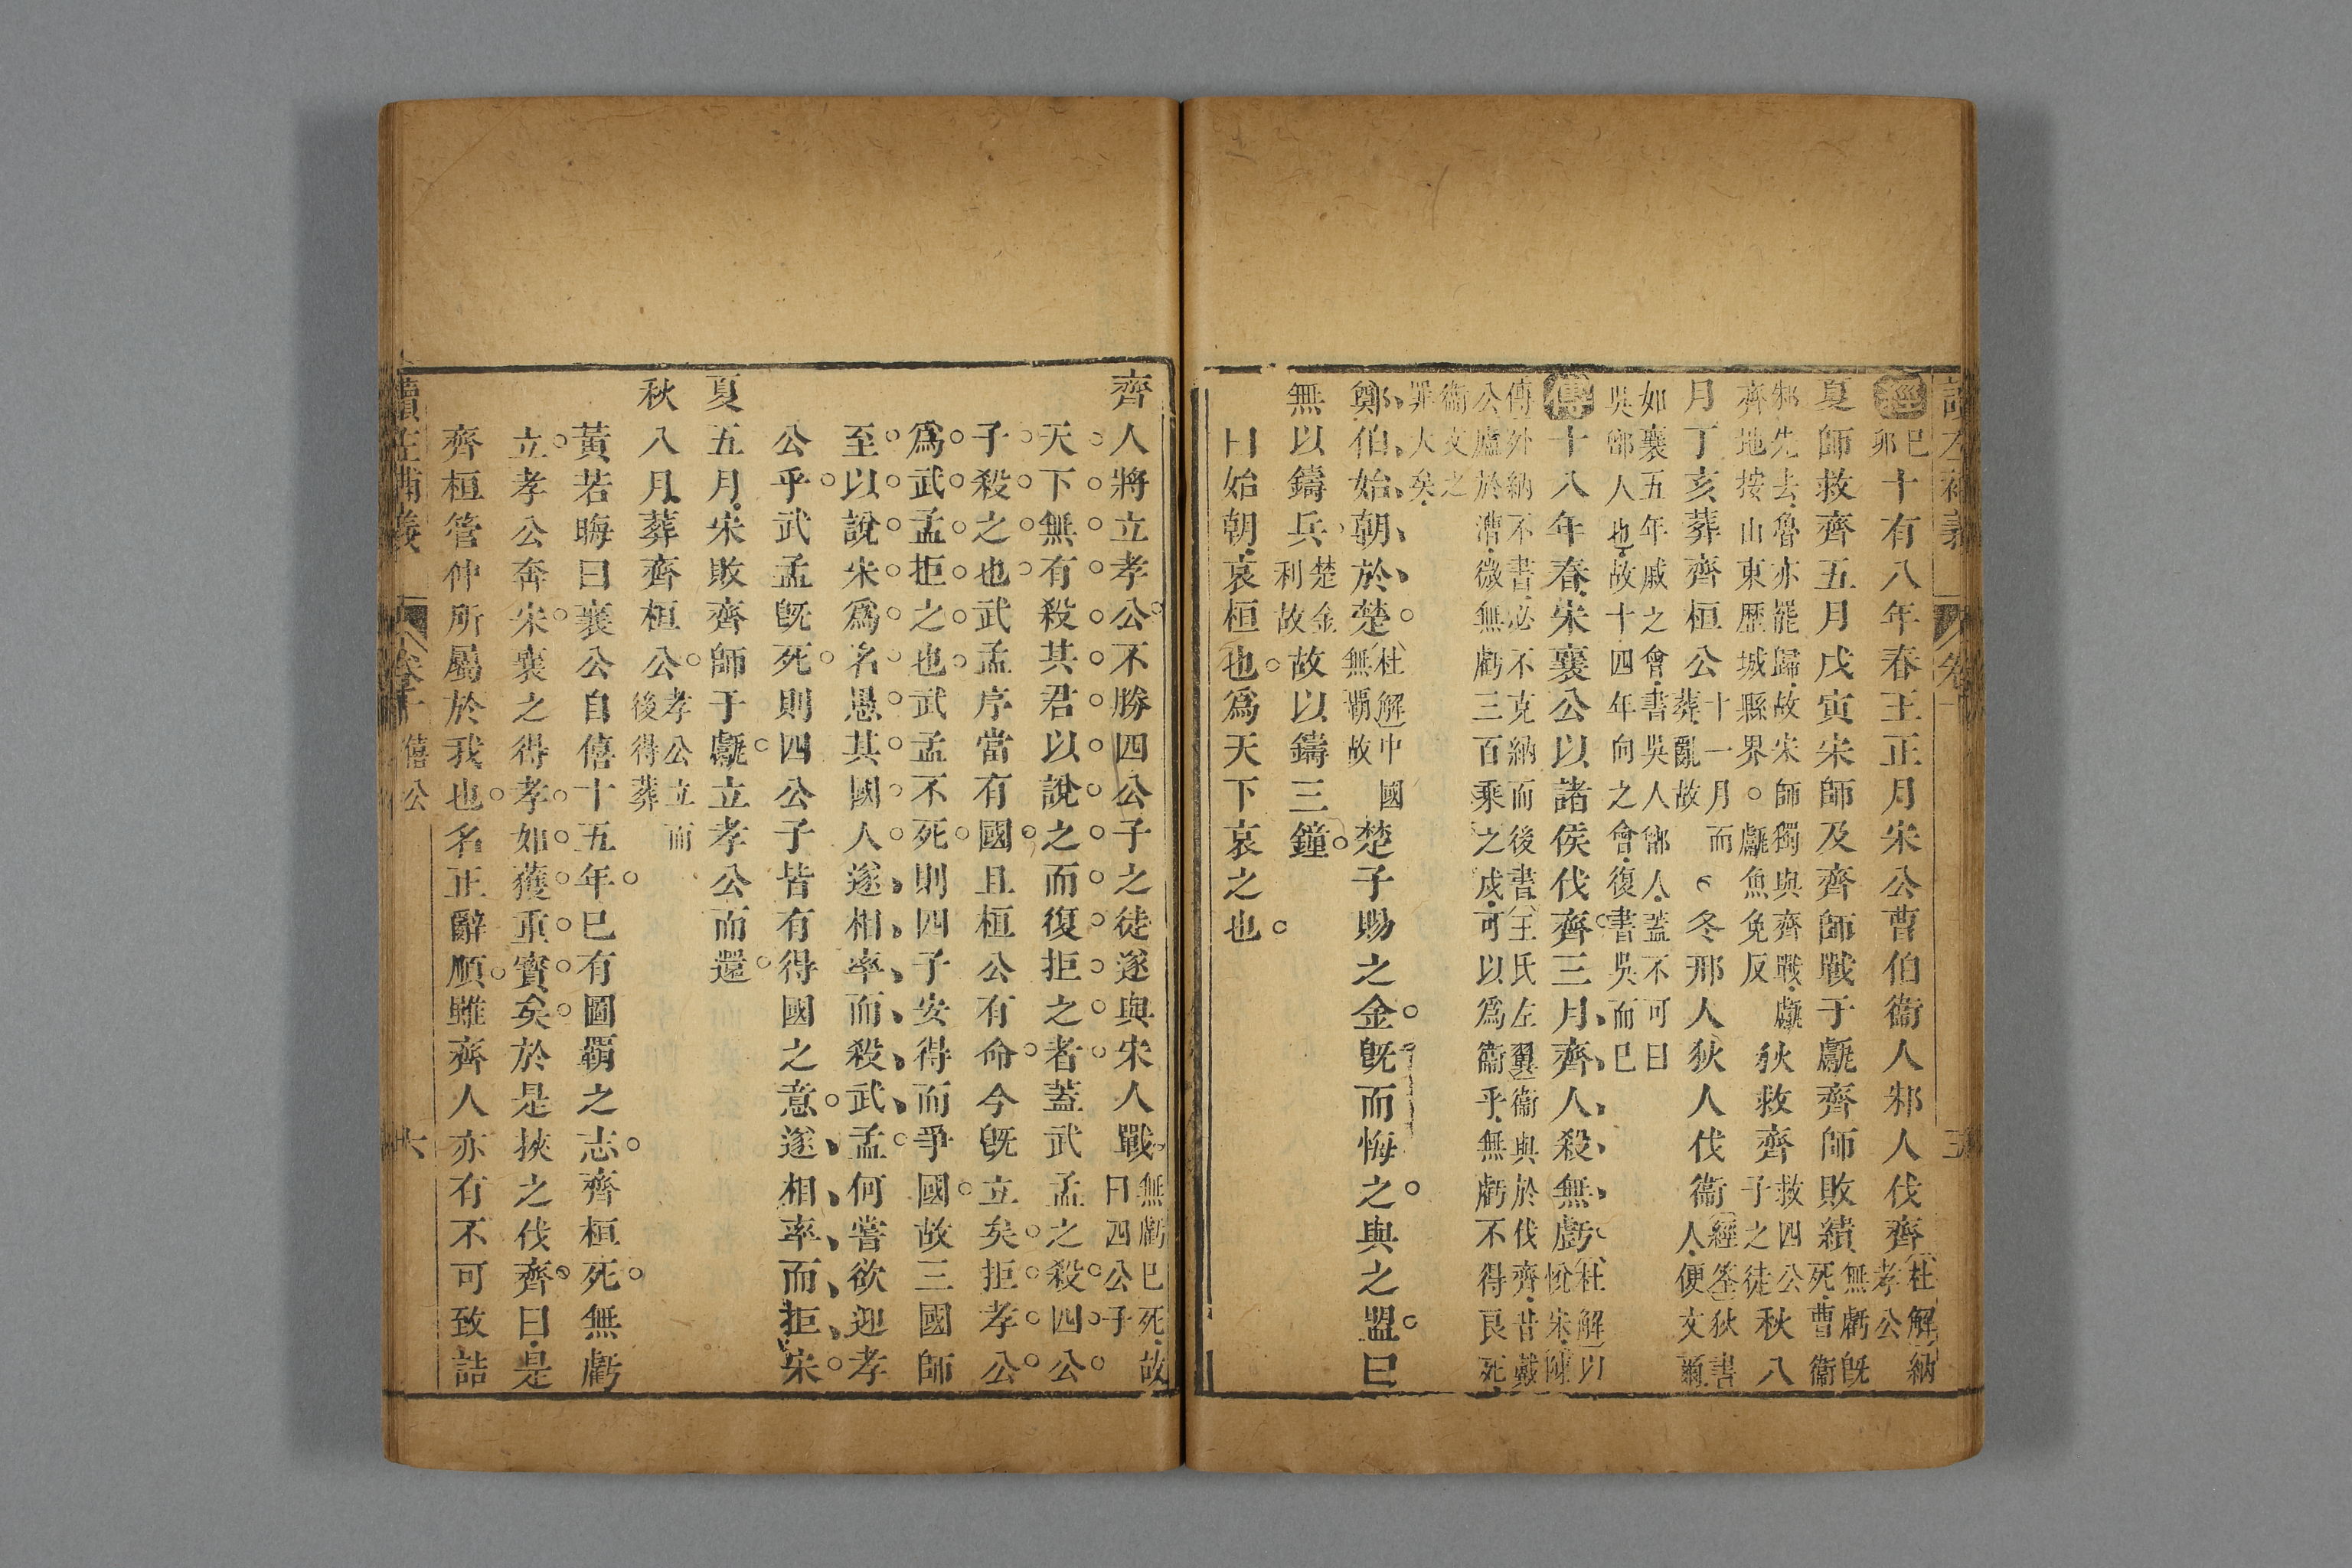 經己卯十有八年春王正月宋公曹伯衞人邾人伐齊杜解納孝公
夏師救齊五月戊寅宋師及齊師戰于甗齊師敗績無虧既死曹衞
邾先去魯亦罷歸故宋師獨與齊戰甗
齊地按山東歷城縣界○甗魚免反
狄救齊救四公子之徒秋八
月丁亥葬齊桓公十一月而葬亂故○冬邢人狄人伐衞經筌狄書人便文爾
如襄五年戚之會書吳人鄫人蓋不可曰
吳鄫人也故十四年向之會復書吳而已
傳十八年春宋襄公以諸侯伐齊三月齊人殺無虧杜解以悅宋陳
傳外納不書必不克納而後書王氏左翼衞與於伐齊昔戴
公廬於漕微無虧三百乘之戍可以爲衞乎無虧不得良死
衞文之
罪大矣
鄭伯始朝於楚杜解中國無覇故楚子賜之金既而悔之與之盟曰
無以鑄兵楚金利故故以鑄三鐘
曰始朝哀桓也爲天下哀之也
齊人將立孝公不勝四公子之徒遂與宋人戰無虧已死故曰四公子
天下無有殺其君以說之而復拒之者蓋武孟之殺四公
子殺之也武孟序當有國且桓公有命今既立矣拒孝公
爲武孟拒之也武孟不死則四子安得而爭國故三國師
至以說宋爲名愚其國人遂相率而殺武孟何嘗欲迎孝
公乎武孟既死則四公子皆有得國之意遂相率而拒宋
夏五月宋敗齊師于甗立孝公而還
秋八月葬齊桓公孝公立而後得葬
黃若晦曰襄公自僖十五年已有圖覇之志齊桓死無虧
立孝公奔宋襄之得孝如獲重寶矣於是挾之伐齊曰是
齊桓管仲所屬於我也名正辭順雖齊人亦有不可致詰
讀左補義
僖公
六